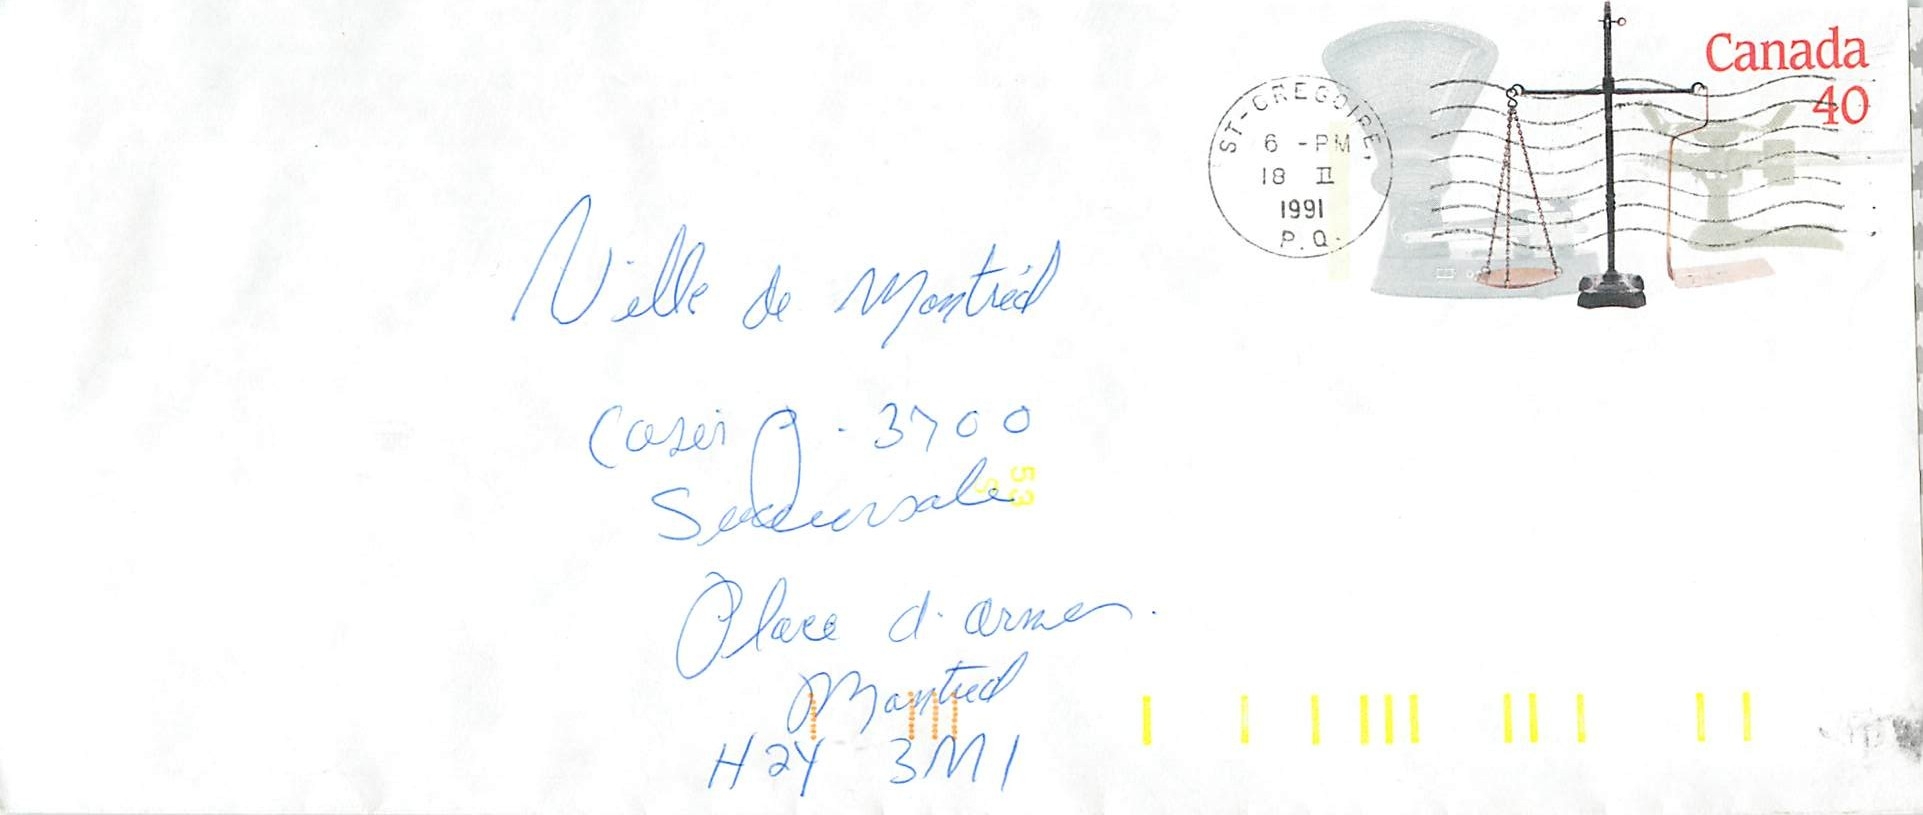 Canada
40
ST-GREGOIRE,
6 -PM
18 II
1991
P.Q.
Ville de Montréal
Casier P. 3700
53
S
Succursale
Place d'armes.
Montreal
H2Y 3M1